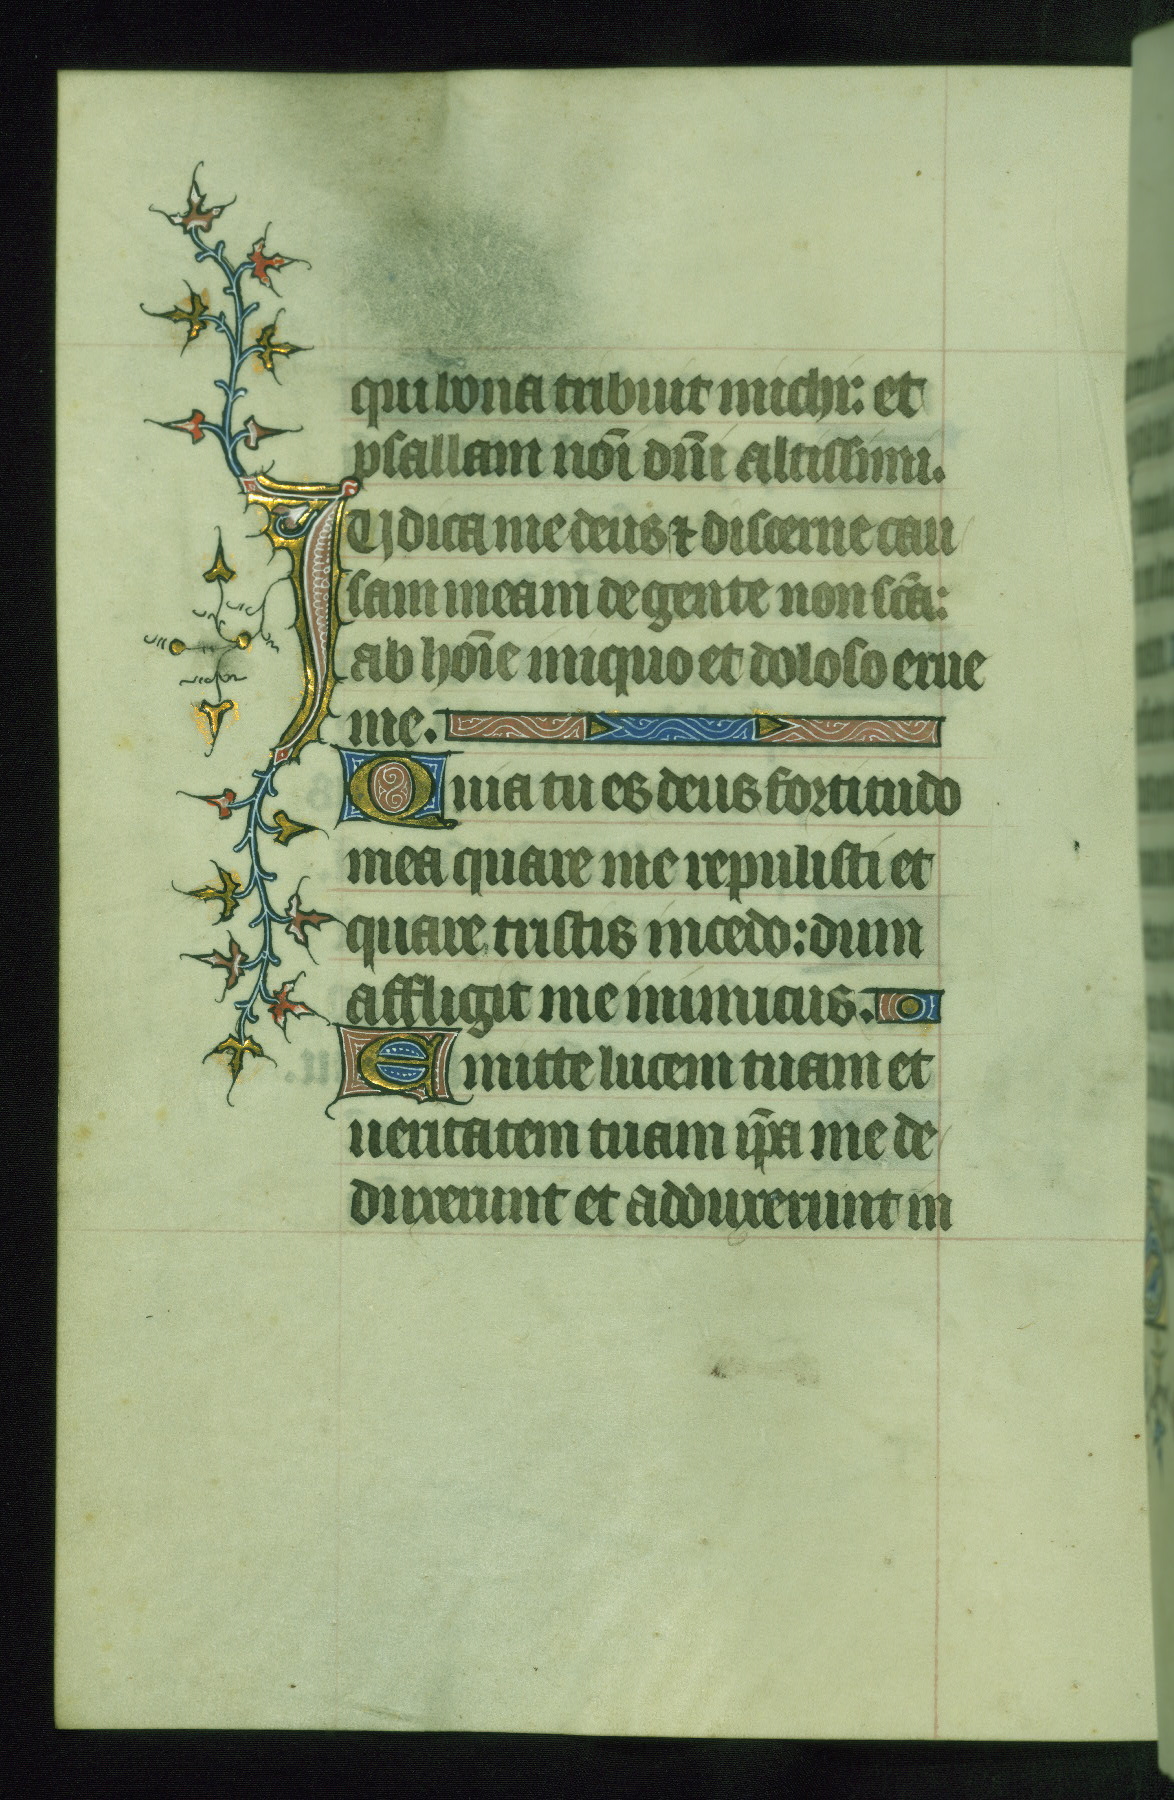 qui bona tribuit michi: et
psallam noī dn̄i altissimi.
IUdica me deus ⁊ discerne cau
sam meam de gente non sc̄a:
ab hoīe iniquo et doloso erue
me.
Quia tu es deus fortitudo
mea quare me repulisti et
quare tristis incedo: dum
affligit me inimicus.
Emitte lucem tuam et
ueritatem tuam ip̄a me de
duxerunt et adduxerunt in